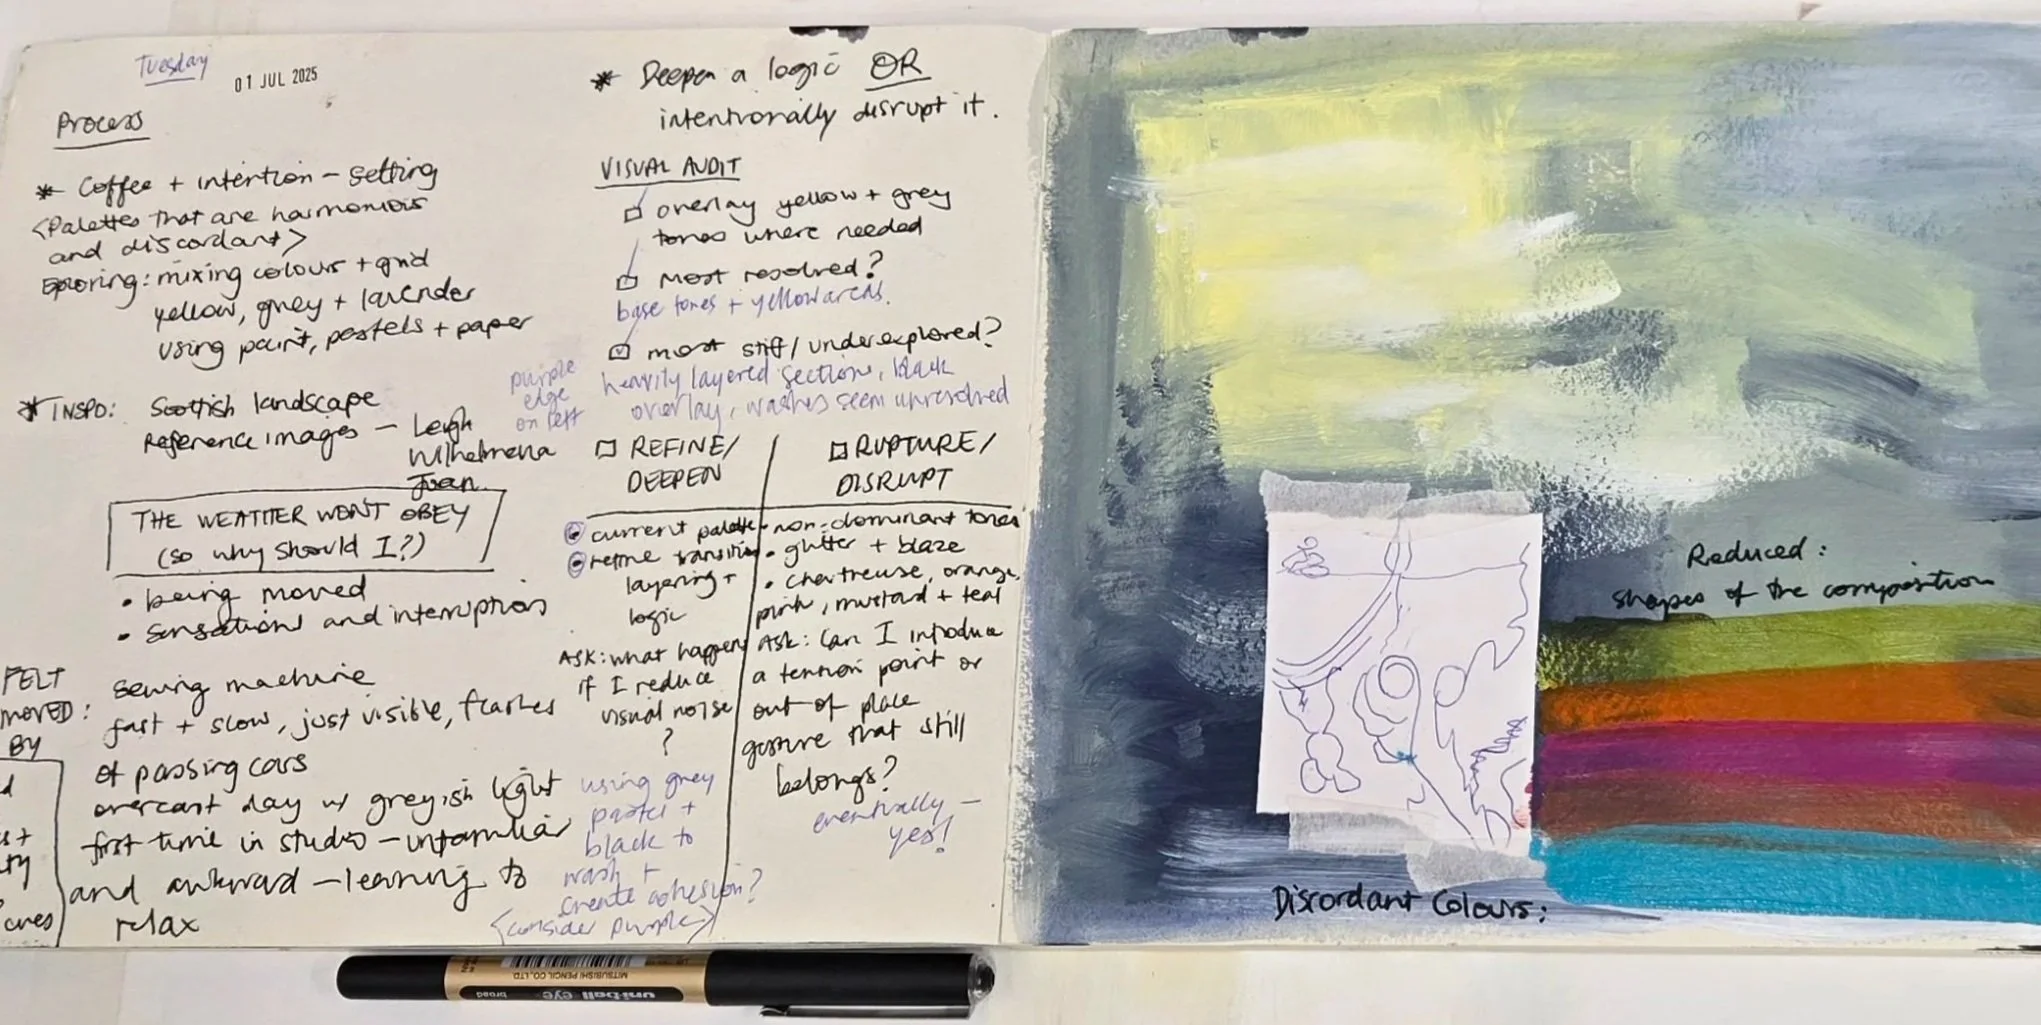 Tuesday
01 JUL 2025
Process
* Coffee + intention - setting
<Palettes that are harmonious
and discordant>
Exploring: mixing colours + grid
yellow, grey + lavender
using paint, pastels + paper
* INSPO: Scottish landscape
Reference images - Leigh
Wilhelmena
Joan
THE WEATHER WON'T OBEY
(so why should I?)
• being moved
• sensations and interruptions
FELT
MOVED:
BY
sewing machine
fast + slow, just visible, flashes
of passing cars
overcast day w/ greyish light
first time in studio - unfamiliar
and awkward - learning to
relax
* Deepen a logic OR
intentionally disrupt it.
VISUAL AUDIT
overlay yellow + grey
tones where needed
most resolved?
base tones + yellow areas.
most stiff/underexplored?
heavily layered sections, black
overlay, washes seem unresolved
purple
edge
on left
REFINE/
DEEPEN
current palette
refine transition
layering +
logic
ASK: what happens
if I reduce
visual noise
?
using grey
pastel +
black to
wash +
create adhesion?
<consider purple>
RUPTURE/
DISRUPT
• non-dominant tones
• glitter + blaze
• chartreuse, orange,
pink, mustard + teal
ASK: Can I introduce
a tension point or
out of place
gesture that still
belongs?
eventually -
yes!
Reduced:
shapes of the composition
Discordant Colours:
MITSUBISHI PENCIL CO., LTD
uni-ball eye broad